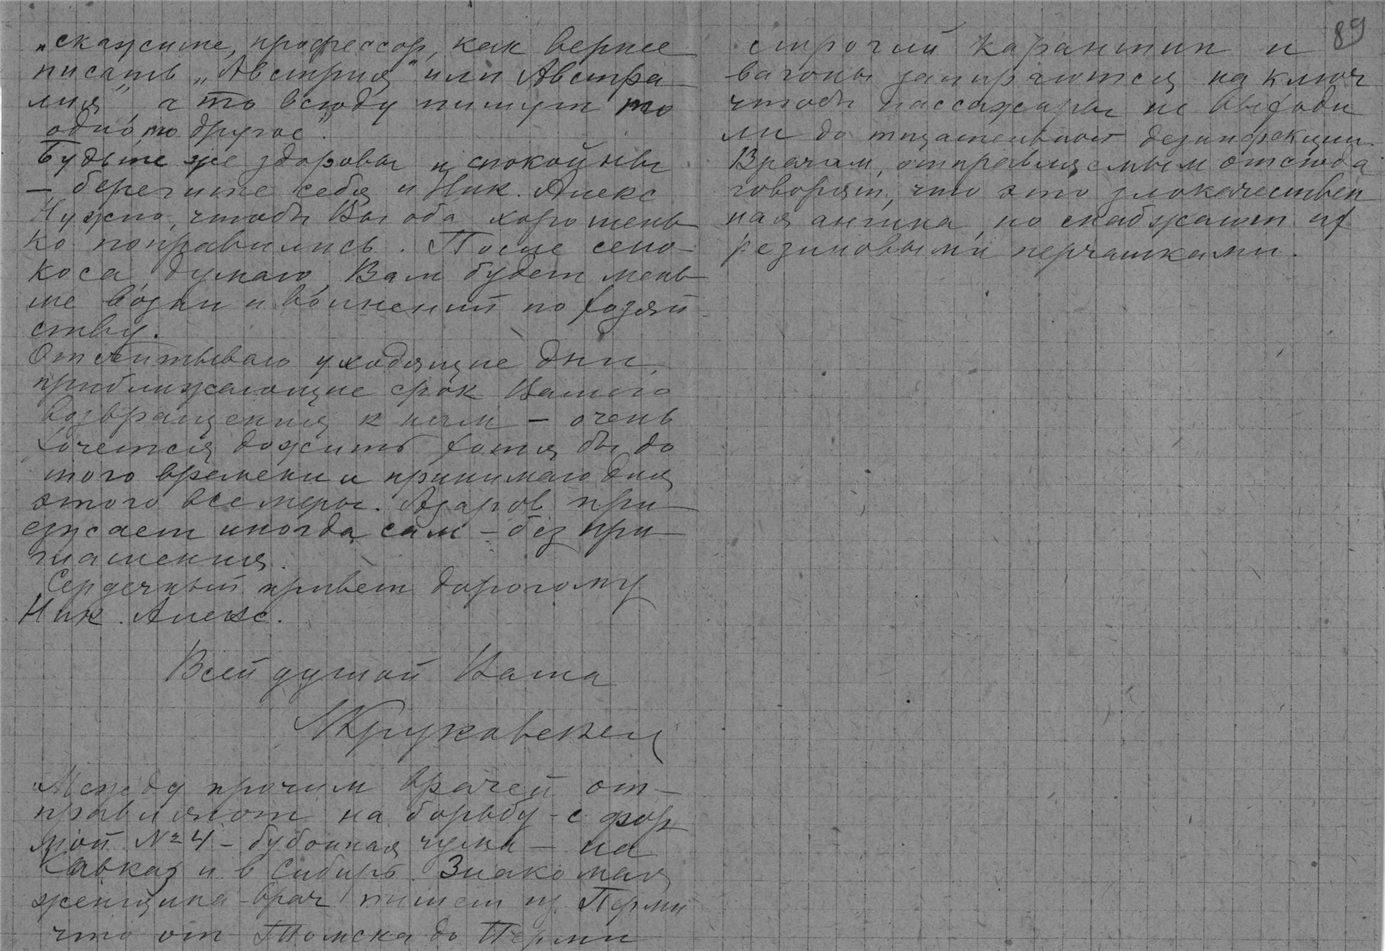 „скажите, профессор, как вернее
писать „Австрия" или Австра-
лия", а то всюду пишут то
одно, то другое".
Будьте же здоровы и спокойны
– берегите себя и Ник. Алекс
Нужно, чтобы Вы оба хорошень-
ко поправились. После сено-
коса, думаю, Вам будет мень-
ше возни и волнений по хозяй-
ству.
Отсчитываю уходящие дни,
приближающие срок Вашего
возвращения к нам – очень
хочется дожить хотя бы до
того времени и принимаю для
этого все меры. Азаров при-
езжает иногда сам – без при-
глашения.
Сердечный привет дорогому
Ник. Алекс.
Всей душой Ваша
Между прочим врачей от-
правляют на борьбу – с фор
мой №4 – бубонная чума – на
Кавказ и в Сибирь. Знакомая
женщина-врач пишет из Перми
что от Томска до Перми
89
строгий карантин и
вагоны запираются на ключ
чтобы пассажиры не выходи
ли до тщательной дезинфекции.
Врачам, отправляемым отсюда
говорят, что это злокачествен
ная ангина, но снабжают их
резиновыми перчатками.